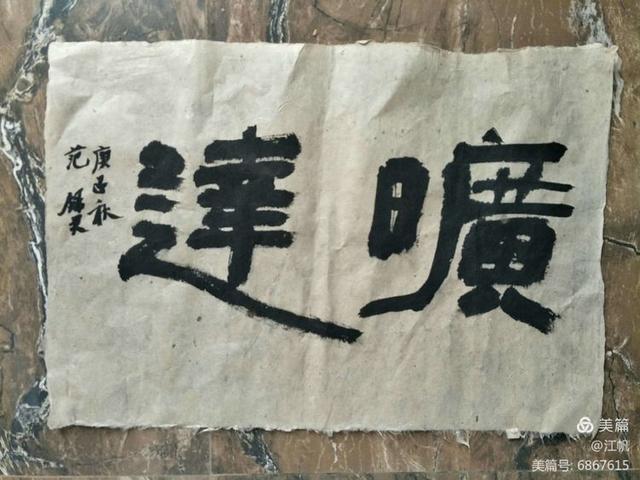 曠達
庚子秋
范
美篇
@江帆
美篇号: 6867615